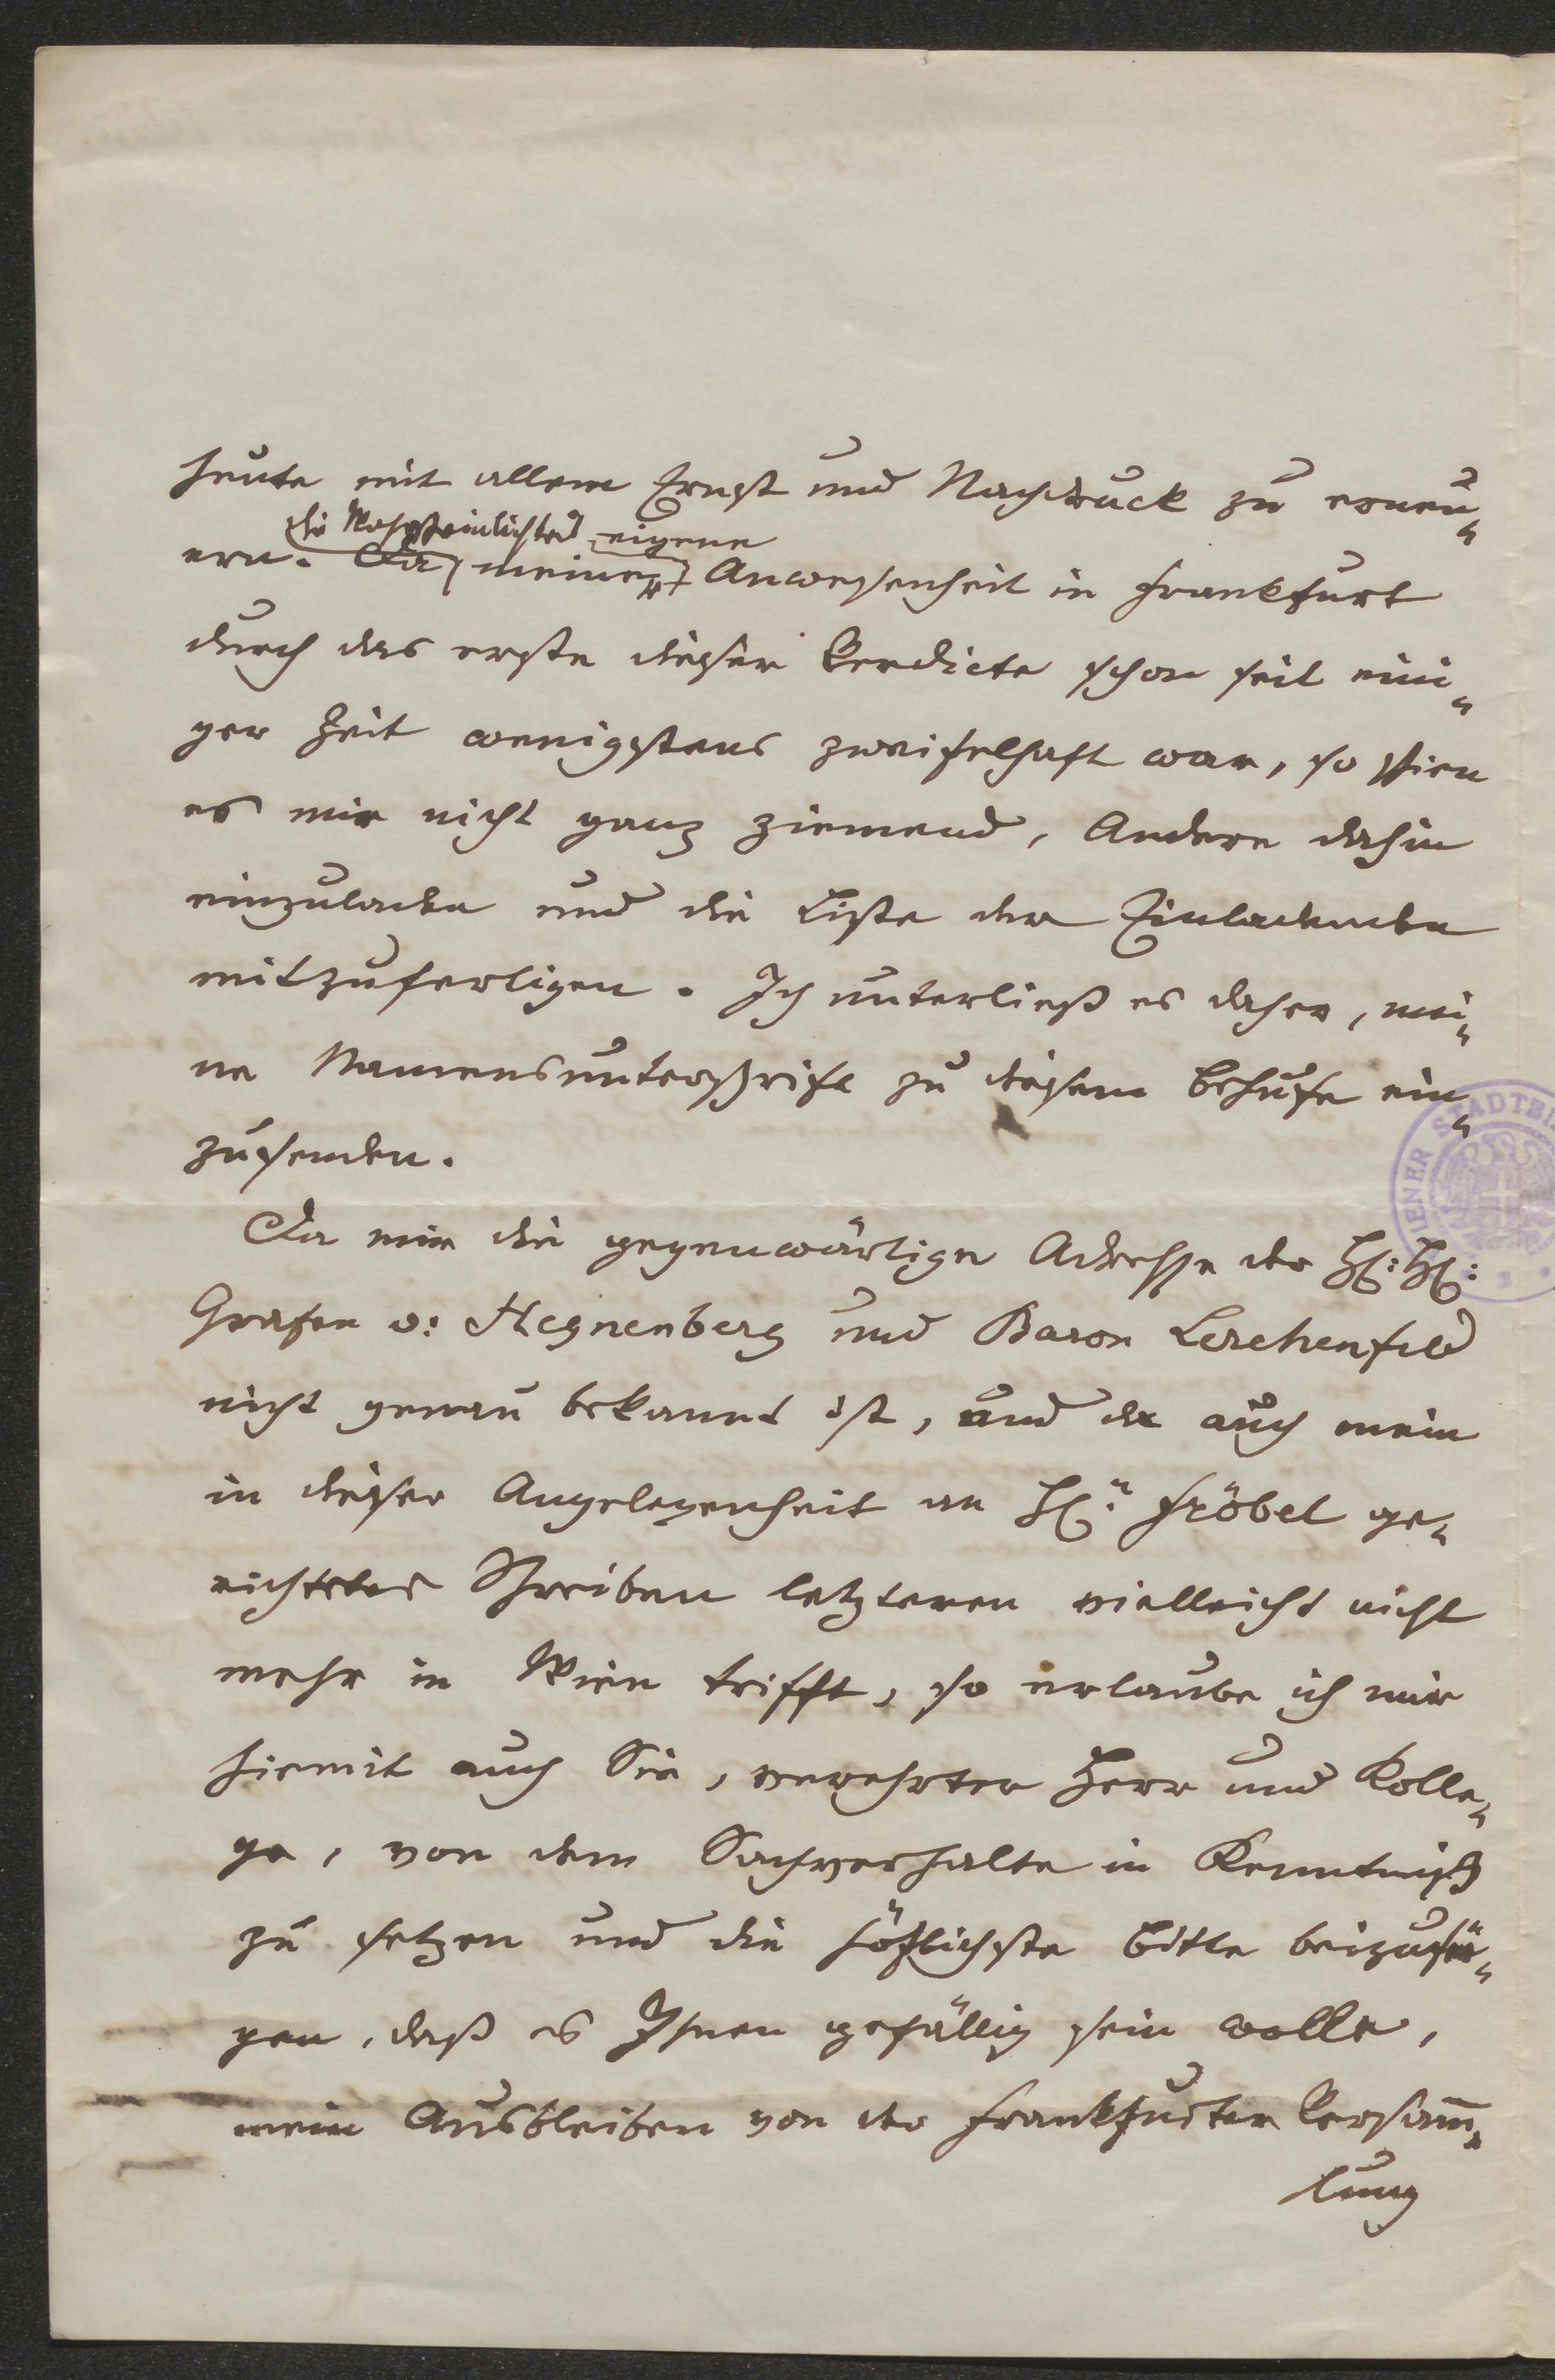 heute mit allem Ernst und Nachdruck zu erneu„
die Wahrscheinlichkeit eigene
ern. Da meiner Anwesenheit in Frankfurt
durch das erste dieser Verdicte schon seit eini„
ger Zeit wenigstens zweifelhaft war, so schien
es mir nicht ganz ziemend, Andere dahin
einzuladen und die Liste der Einladenden
mitzufertigen. Ich unterließ es daher, mei„
ne Namensunterschrift zu diesem Behufe ein„
zusenden.
Da mir die gegenwärtige Adresse der H: H:
Grafen v: Hegnenberg und Baron Lerchenfeld
nicht genau bekannt ist, und da auch mein
in dieser Angelegenheit an H: Fröbel ge„
richtetes Schreiben letzteren vielleicht nicht
mehr in Wien trifft, so erlaube ich mir
hiemit auch Sie, verehrter Herr und Kolle„
ge, von dem Sachverhalte in Kenntniß
zu setzen und die höflichste Bitte beizufü„
gen, daß es Ihnen gefällig sein wolle,
mein Ausbleiben von der Frankfurter Versam̅„
lung
IENER STADTBI